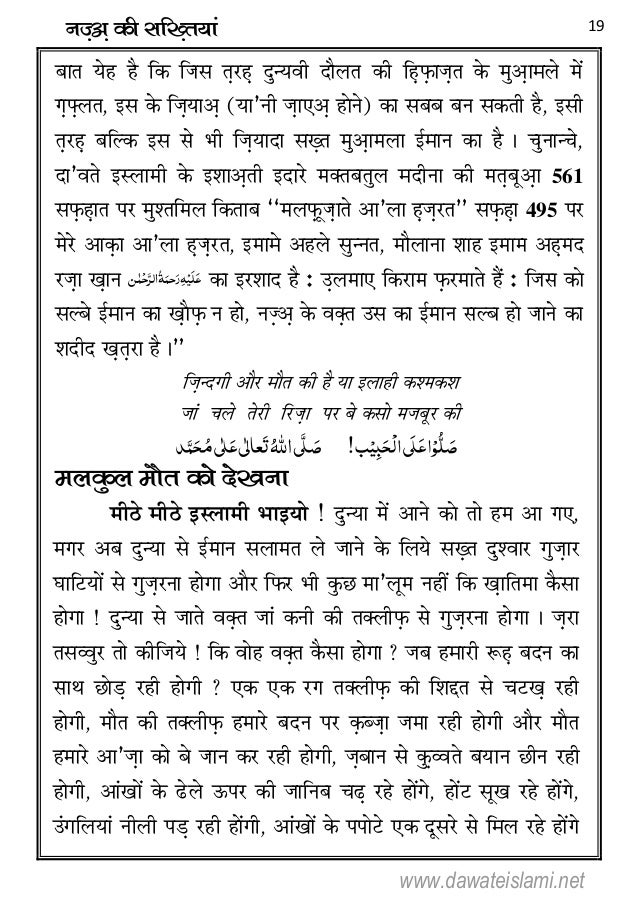 नज़्अ़ की सख़्तियां
19
बात येह है कि जिस त़रह़ दुन्यवी दौलत की ह़िफ़ाज़त के मुआ़मले में
ग़फ़्लत, इस के ज़ियाअ़ (या'नी ज़ाएअ़ होने) का सबब बन सकती है, इसी
त़रह़ बल्कि इस से भी ज़ियादा सख़्त मुआ़मला ईमान का है । चुनान्चे,
दा'वते इस्लामी के इशाअ़ती इदारे मक्तबतुल मदीना की मत़्बूआ़ 561
सफ़ह़ात पर मुश्तमिल किताब ‘‘मलफ़ूज़ाते आ'ला ह़ज़रत’’ सफ़ह़ा 495 पर
मेरे आक़ा आ'ला ह़ज़रत, इमामे अहले सुन्नत, मौलाना शाह इमाम अह़मद
रज़ा ख़ान عَلَيْهِ رَحْمَةُ الرَّحْمٰن का इरशाद है : उ़लमाए किराम फ़रमाते हैं : जिस को
सल्बे ईमान का ख़ौफ़ न हो, नज़्अ़ के वक़्त उस का ईमान सल्ब हो जाने का
शदीद ख़त़रा है ।’’
ज़िन्दगी और मौत की है या इलाही कश्मकश
जां चले तेरी रिज़ा पर बे कसो मजबूर की
صَلُّوْا عَلَى الْحَبِيْب! صَلَّى اللهُ تَعَالٰى عَلٰى مُحَمَّد
मलकुल मौत को देखना
मीठे मीठे इस्लामी भाइयो ! दुन्या में आने को तो हम आ गए,
मगर अब दुन्या से ईमान सलामत ले जाने के लिये सख़्त दुश्वार गुज़ार
घाटियों से गुज़रना होगा और फिर भी कुछ मा'लूम नहीं कि ख़ातिमा कैसा
होगा ! दुन्या से जाते वक़्त जां कनी की तक्लीफ़ से गुज़रना होगा । ज़रा
तसव्वुर तो कीजिये ! कि वोह वक़्त कैसा होगा ? जब हमारी रूह़ बदन का
साथ छोड़ रही होगी ? एक एक रग तक्लीफ़ की शिद्दत से चटख़ रही
होगी, मौत की तक्लीफ़ हमारे बदन पर क़ब्ज़ा जमा रही होगी और मौत
हमारे आ'ज़ा को बे जान कर रही होगी, ज़बान से क़ुव्वते बयान छीन रही
होगी, आंखों के ढेले ऊपर की जानिब चढ़ रहे होंगे, होंट सूख रहे होंगे,
उंगलियां नीली पड़ रही होंगी, आंखों के पपोटे एक दूसरे से मिल रहे होंगे
www.dawateislami.net